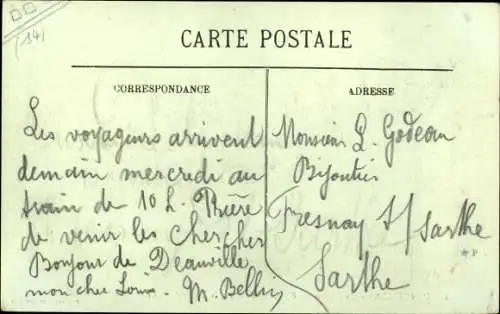 (14)
CARTE POSTALE
CORRESPONDANCE
Les voyageurs arrivent
demain mercredi au
train de 10 h. Prière
de venir les chercher
Bonjour de Deauville
mon cher Louis. M. Bellin
ADRESSE
Monsieur L. Godeau
Bijoutier
Fresnay S/ Sarthe
Sarthe